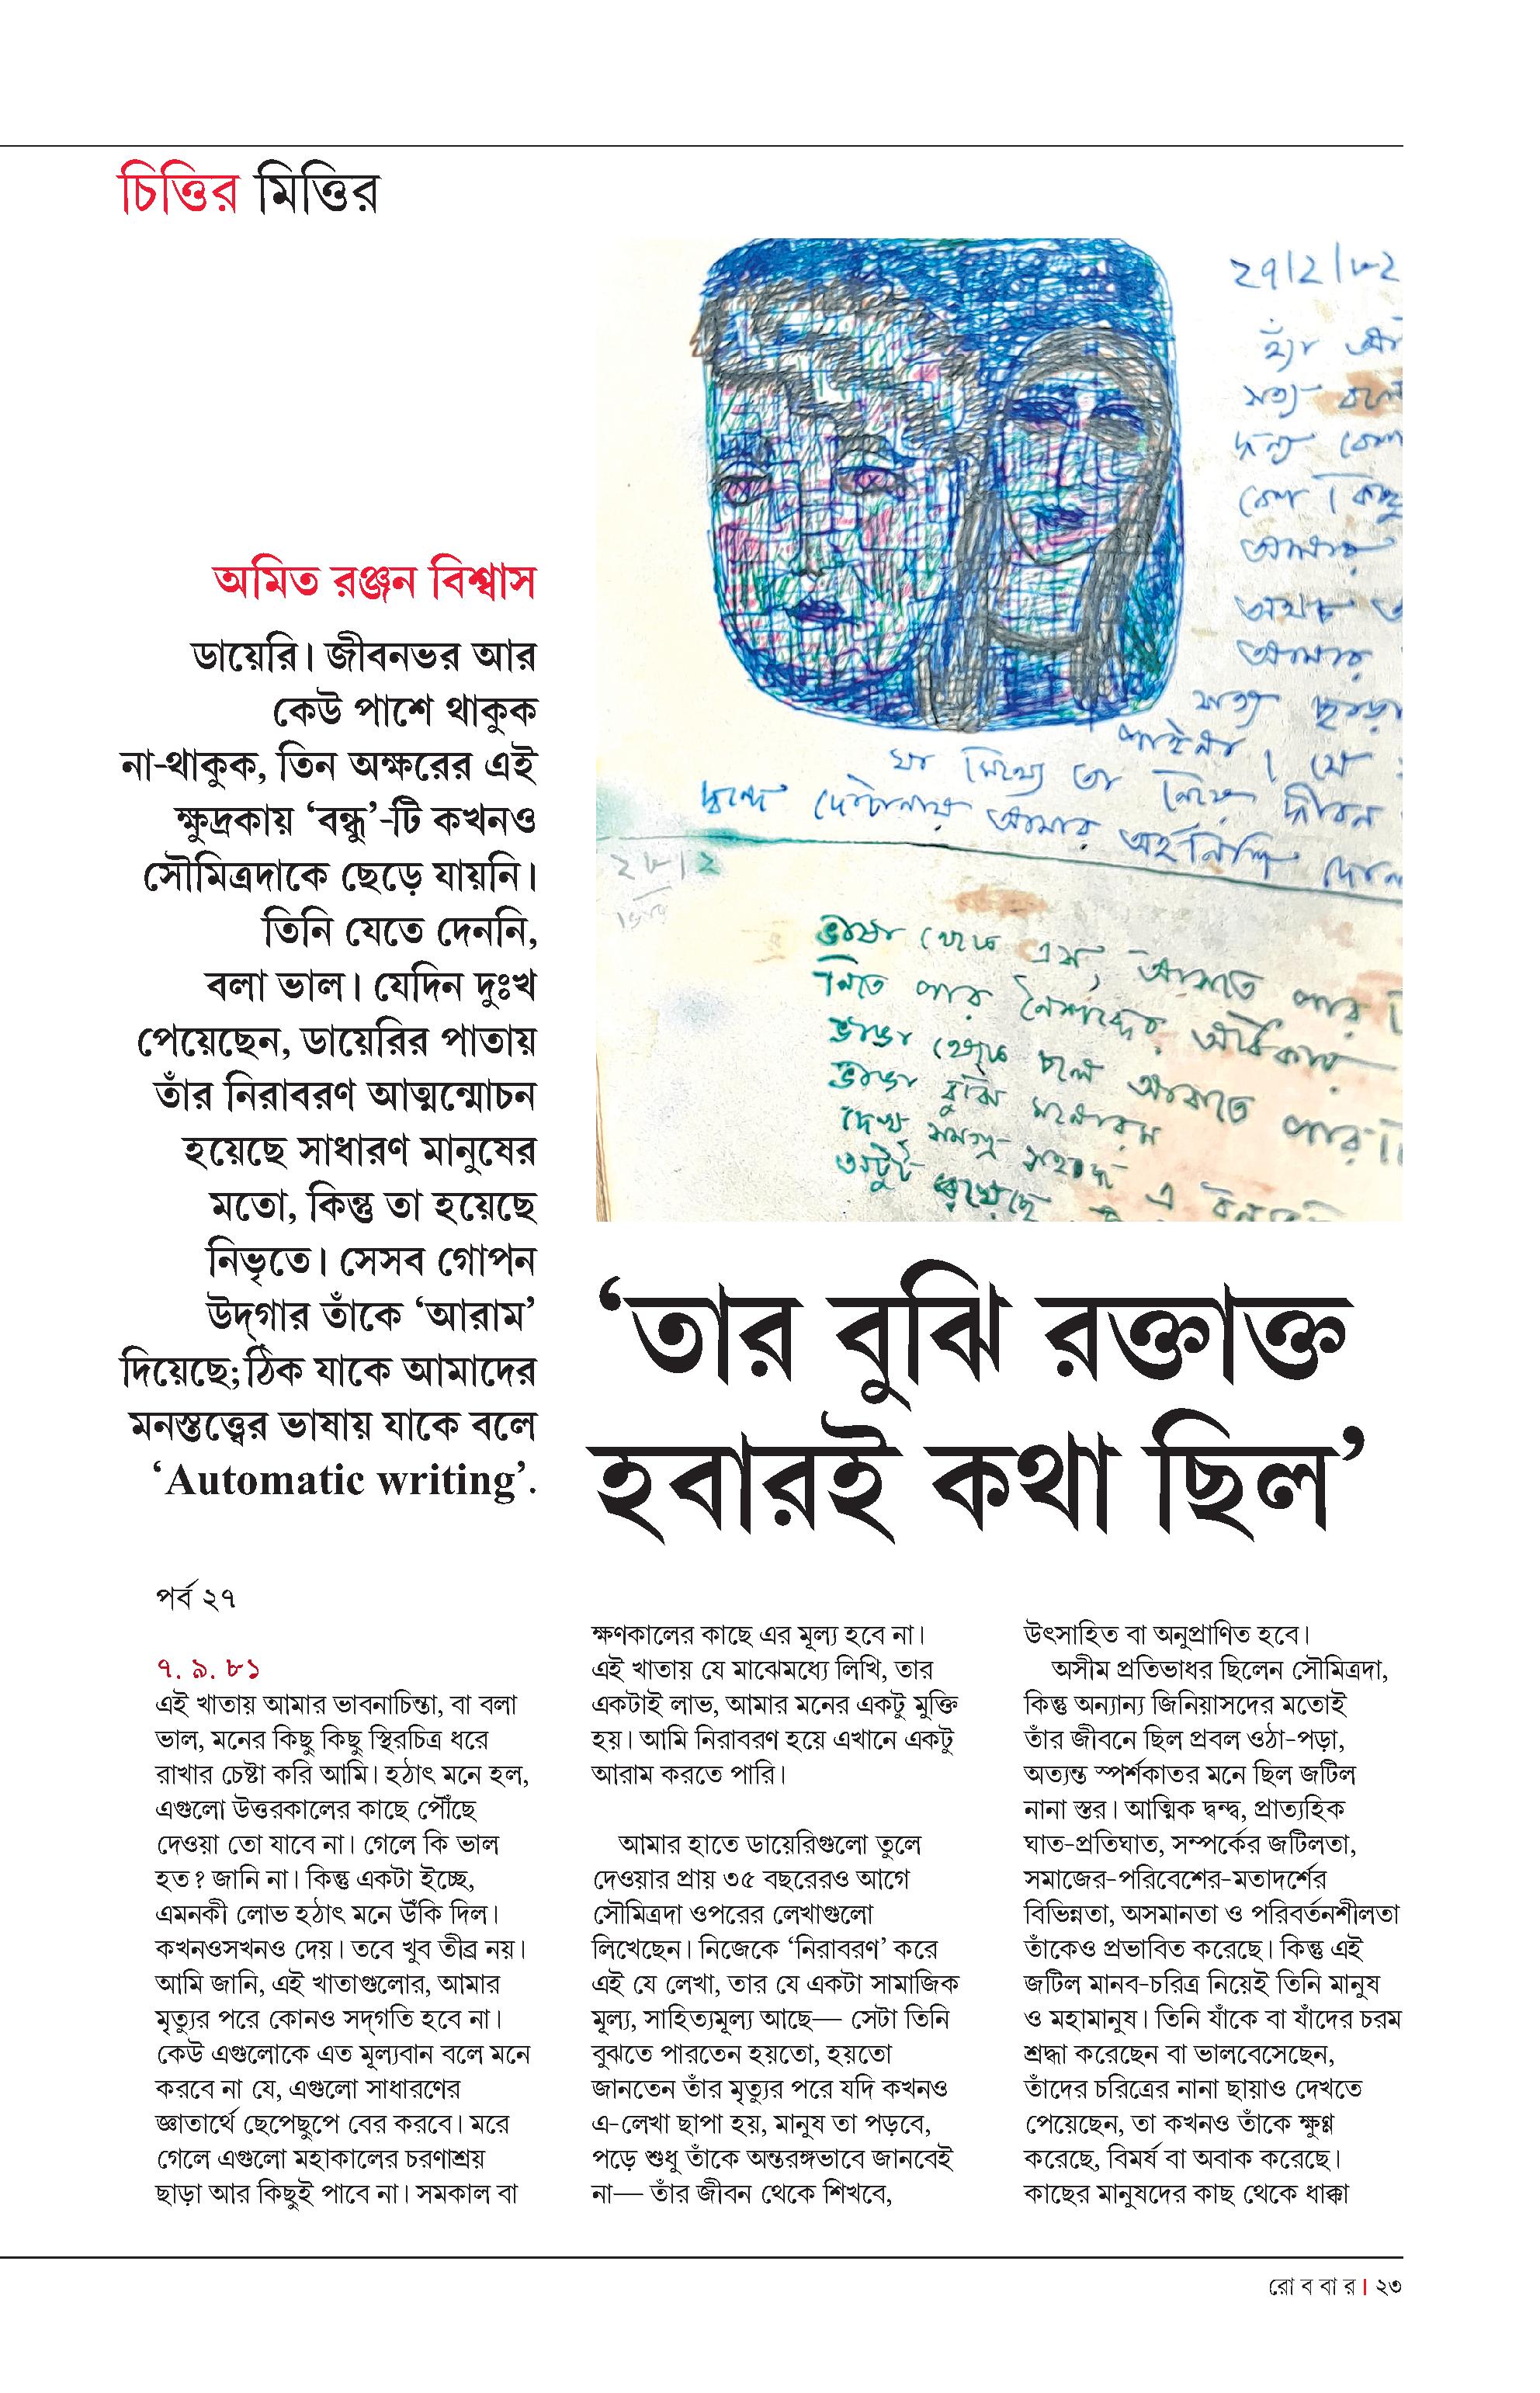 চিত্তির মিত্তির
২৭/২/৮২
হ্যাঁ
সত্য
আমার
অথচ
আমার
সত্য ছাড়া
পাইনা। যে
যা মিথ্যে তা নিয়ে জীবন
দ্বন্দ্বে দোটানায় আমার অহর্নিশি
২৮/২
ভাষা থেকে এস, আসতে পার
নিতে পার নৈঃশব্দের অধিকার
ভাঙা বুঝি মনোরম
দেখ সমগ্র
অটুট রেখেছে এ
অমিত রঞ্জন বিশ্বাস
ডায়েরি। জীবনভর আর
কেউ পাশে থাকুক
না-থাকুক, তিন অক্ষরের এই
ক্ষুদ্রকায় ‘বন্ধু’-টি কখনও
সৌমিত্রদাকে ছেড়ে যায়নি।
তিনি যেতে দেননি,
বলা ভাল। যেদিন দুঃখ
পেয়েছেন, ডায়েরির পাতায়
তাঁর নিরাবরণ আত্মন্মোচন
হয়েছে সাধারণ মানুষের
মতো, কিন্তু তা হয়েছে
নিভৃতে। সেসব গোপন
উদ্‌গার তাঁকে ‘আরাম’
দিয়েছে; ঠিক যাকে আমাদের
মনস্তত্ত্বের ভাষায় যাকে বলে
‘Automatic writing’.
‘তার বুঝি রক্তাক্ত
হবারই কথা ছিল’
পর্ব ২৭
৭. ৯. ৮১
এই খাতায় আমার ভাবনাচিন্তা, বা বলা
ভাল, মনের কিছু কিছু স্থিরচিত্র ধরে
রাখার চেষ্টা করি আমি। হঠাৎ মনে হল,
এগুলো উত্তরকালের কাছে পৌঁছে
দেওয়া তো যাবে না। গেলে কি ভাল
হত? জানি না। কিন্তু একটা ইচ্ছে,
এমনকী লোভ হঠাৎ মনে উঁকি দিল।
কখনওসখনও দেয়। তবে খুব তীব্র নয়।
আমি জানি, এই খাতাগুলোর, আমার
মৃত্যুর পরে কোনও সদ্‌গতি হবে না।
কেউ এগুলোকে এত মূল্যবান বলে মনে
করবে না যে, এগুলো সাধারণের
জ্ঞাতার্থে ছেপেছুপে বের করবে। মরে
গেলে এগুলো মহাকালের চরণাশ্রয়
ছাড়া আর কিছুই পাবে না। সমকাল বা
ক্ষণকালের কাছে এর মূল্য হবে না।
এই খাতায় যে মাঝেমধ্যে লিখি, তার
একটাই লাভ, আমার মনের একটু মুক্তি
হয়। আমি নিরাবরণ হয়ে এখানে একটু
আরাম করতে পারি।
আমার হাতে ডায়েরিগুলো তুলে
দেওয়ার প্রায় ৩৫ বছরেরও আগে
সৌমিত্রদা ওপরের লেখাগুলো
লিখেছেন। নিজেকে ‘নিরাবরণ’ করে
এই যে লেখা, তার যে একটা সামাজিক
মূল্য, সাহিত্যমূল্য আছে— সেটা তিনি
বুঝতে পারতেন হয়তো, হয়তো
জানতেন তাঁর মৃত্যুর পরে যদি কখনও
এ-লেখা ছাপা হয়, মানুষ তা পড়বে,
পড়ে শুধু তাঁকে অন্তরঙ্গভাবে জানবেই
না— তাঁর জীবন থেকে শিখবে,
উৎসাহিত বা অনুপ্রাণিত হবে।
অসীম প্রতিভাধর ছিলেন সৌমিত্রদা,
কিন্তু অন্যান্য জিনিয়াসদের মতোই
তাঁর জীবনে ছিল প্রবল ওঠা-পড়া,
অত্যন্ত স্পর্শকাতর মনে ছিল জটিল
নানা স্তর। আত্মিক দ্বন্দ্ব, প্রাত্যহিক
ঘাত-প্রতিঘাত, সম্পর্কের জটিলতা,
সমাজের-পরিবেশের-মতাদর্শের
বিভিন্নতা, অসমানতা ও পরিবর্তনশীলতা
তাঁকেও প্রভাবিত করেছে। কিন্তু এই
জটিল মানব-চরিত্র নিয়েই তিনি মানুষ
ও মহামানুষ। তিনি যাঁকে বা যাঁদের চরম
শ্রদ্ধা করেছেন বা ভালবেসেছেন,
তাঁদের চরিত্রের নানা ছায়াও দেখতে
পেয়েছেন, তা কখনও তাঁকে ক্ষুণ্ণ
করেছে, বিমর্ষ বা অবাক করেছে।
কাছের মানুষদের কাছ থেকে ধাক্কা
রোববার। ২৩